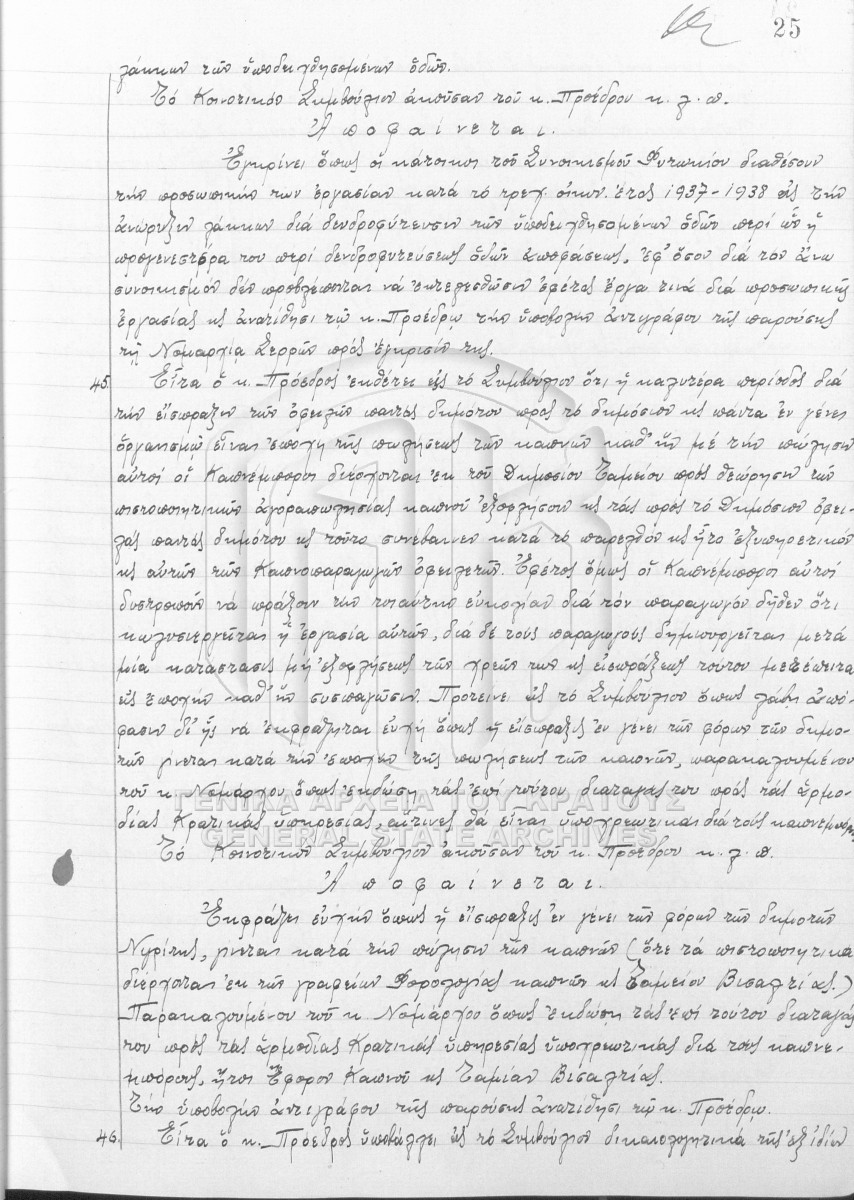 25
λάκκων τῶν ὑποδειχθησομένων ὁδῶν.
Τό Κοινοτικόν Συμβούλιον ἀκοῦσαν τοῦ κ. Προέδρου κ. λ. π.
Ἀποφαίνεται.
Ἐγκρίνει ὅπως οἱ κάτοικοι τοῦ Συνοικισμοῦ Φυτωκίου διαθέσουν
τήν προσωπικήν των ἐργασίαν κατά τό τρεχ. οἰκον. ἔτος 1937-1938 εἰς τήν
ἀνόρυξιν λάκκων διά δενδροφύτευσιν τῶν ὑποδειχθησομένων ὁδῶν περί ὧν ἡ
προγενεστέρα του περί δενδροφυτεύσεως ὁδῶν ἀποφάσεως, ἐφ' ὅσον διά τόν ἄνω
συνοικισμόν δέν προβλέπονται νά ἐκτελεσθῶσιν ἐφέτος ἔργα τινά διά προσωπικῆς
ἐργασίας κς ἀνατίθησι τῷ κ. Προέδρῳ τήν ὑποβολήν ἀντιγράφου τῆς παρούσης
τῇ Νομαρχίᾳ Σερρῶν πρός ἔγκρισίν της.
45. Εἶτα ὁ κ. Πρόεδρος ἐκθέτει εἰς τό Συμβούλιον ὅτι ἡ καλυτέρα περίοδος διά
τήν εἴσπραξιν τῶν ὀφειλῶν παντός δημότου πρός τό δημόσιον κς πάντα ἐν γένει
ὀργανισμῷ εἶναι ἐποχή τῆς πωλήσεως τῶν καπνῶν καθ' ἥν μέ τήν πώλησιν
αὐτοί οἱ Καπνέμποροι διέρχονται ἐκ τοῦ Δημοσίου Ταμείου πρός θεώρησιν τῶν
πιστοποιητικῶν ἀγοραπωλησίας καπνοῦ ἐξοφλήσουν κς τάς πρός τό Δημόσιον ὀφει-
λάς παντός δημότου κς τοῦτο συνέβαινεν κατά τό παρελθόν κς ἦτο ἐξυπηρετικόν
κς αὐτῶν τῶν Καπνοπαραγωγῶν ὀφειλετῶν. Ἐφέτος ὅμως οἱ Καπνέμποροι αὐτοί
δυστροποῦν νά πράξουν τήν τοιαύτην εὐκολίαν διά τόν παραγωγόν δῆθεν ὅτι
κωλυσιεργεῖται ἡ ἐργασία αὐτῶν, διά δέ τούς παραγωγούς δημιουργεῖται μετά
μία κατάστασις μή ἐξοφλήσεως τῶν χρεῶν των κς εἰσπράξεως τούτου μετέπειτα
εἰς ἐποχήν καθ' ἥν συσπαγῶσιν. Προτείνει εἰς τό Συμβούλιον ὅπως λάβῃ ἀπό-
φασιν δι' ἧς νά ἐκφράζηται εὐχή ὅπως ἡ εἴσπραξις ἐν γένει τῶν φόρων τῶν δημο-
τῶν γίνεται κατά τήν ἐποχήν τῆς πωλήσεως τῶν καπνῶν, παρακαλουμένου
τοῦ κ. Νομάρχου ὅπως ἐκδώσῃ τάς ἐπί τούτου διαταγάς του πρός τάς ἁρμο-
δίας Κρατικάς ὑπηρεσίας, αἵτινες θά εἶναι ὑποχρεωτικαί διά τούς καπνεμπόρους
Τό Κοινοτικόν Συμβούλιον ἀκοῦσαν τοῦ κ. Προέδρου κ. λ. π.
Ἀποφαίνεται.
Ἐκφράζει εὐχήν ὅπως ἡ εἴσπραξις ἐν γένει τῶν φόρων τῶν δημοτῶν
Νιγρίτης, γίνεται κατά τήν πώλησιν τῶν καπνῶν (ὅτε τά πιστοποιητικά
διέρχονται ἐκ τῶν γραφείων Φορολογίας καπνῶν κς Ταμείου Βισαλτίας.)
Παρακαλουμένου τοῦ κ. Νομάρχου ὅπως ἐκδώσῃ τάς ἐπί τούτου διαταγάς
του πρός τάς ἁρμοδίας Κρατικάς ὑπηρεσίας ὑποχρεωτικάς διά τούς καπνε-
μπόρους, ἤτοι Ἔφορον Καπνοῦ κς Ταμίαν Βισαλτίας.
Τήν ὑποβολήν ἀντιγράφου τῆς παρούσης ἀνατίθησι τῷ κ. Προέδρῳ.
46. Εἶτα ὁ κ. Πρόεδρος ὑποβάλλει εἰς τό Συμβούλιον δικαιολογητικά τῆς ἐξ ἰδίων
ΓΕΝΙΚΑ ΑΡΧΕΙΑ ΤΟΥ ΚΡΑΤΟΥΣ
GENERAL STATE ARCHIVES